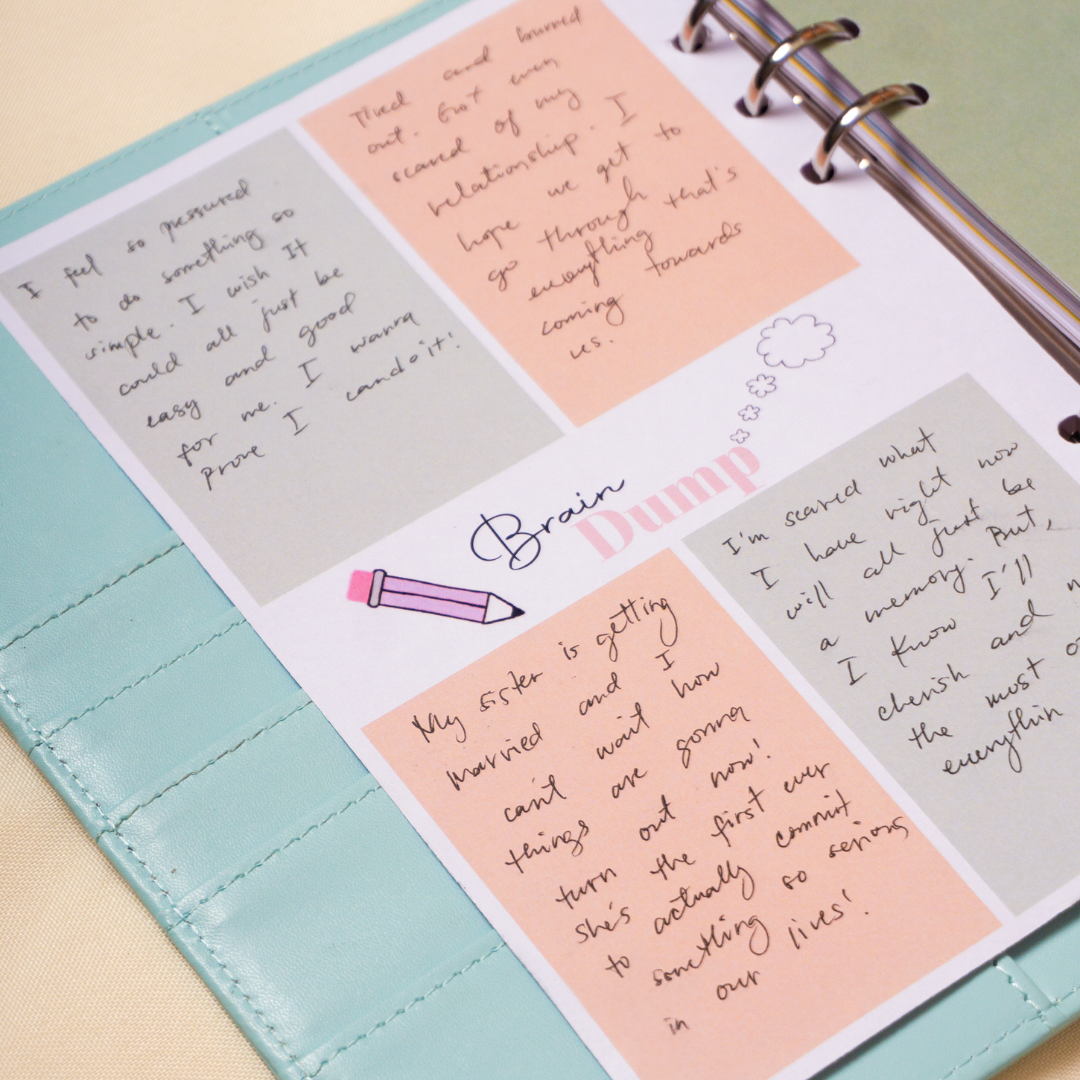 I feel so pressured
to do something so
simple. I wish It
could all just be
easy and good
for me. I wanna
prove I can do it!
Tired and burned
out. Got even
scared of my
relationship. I
hope we get to
go through
everything that's
coming towards
us.
Brain
Dump
My sister is getting
married and I
can't wait how
things are gonna
turn out now!
She's the first ever
to actually commit
something so serious
in our lives!
I'm scared what
I have right now
will all just be
a memory. But,
I know I'll
cherish and
the most
everythin